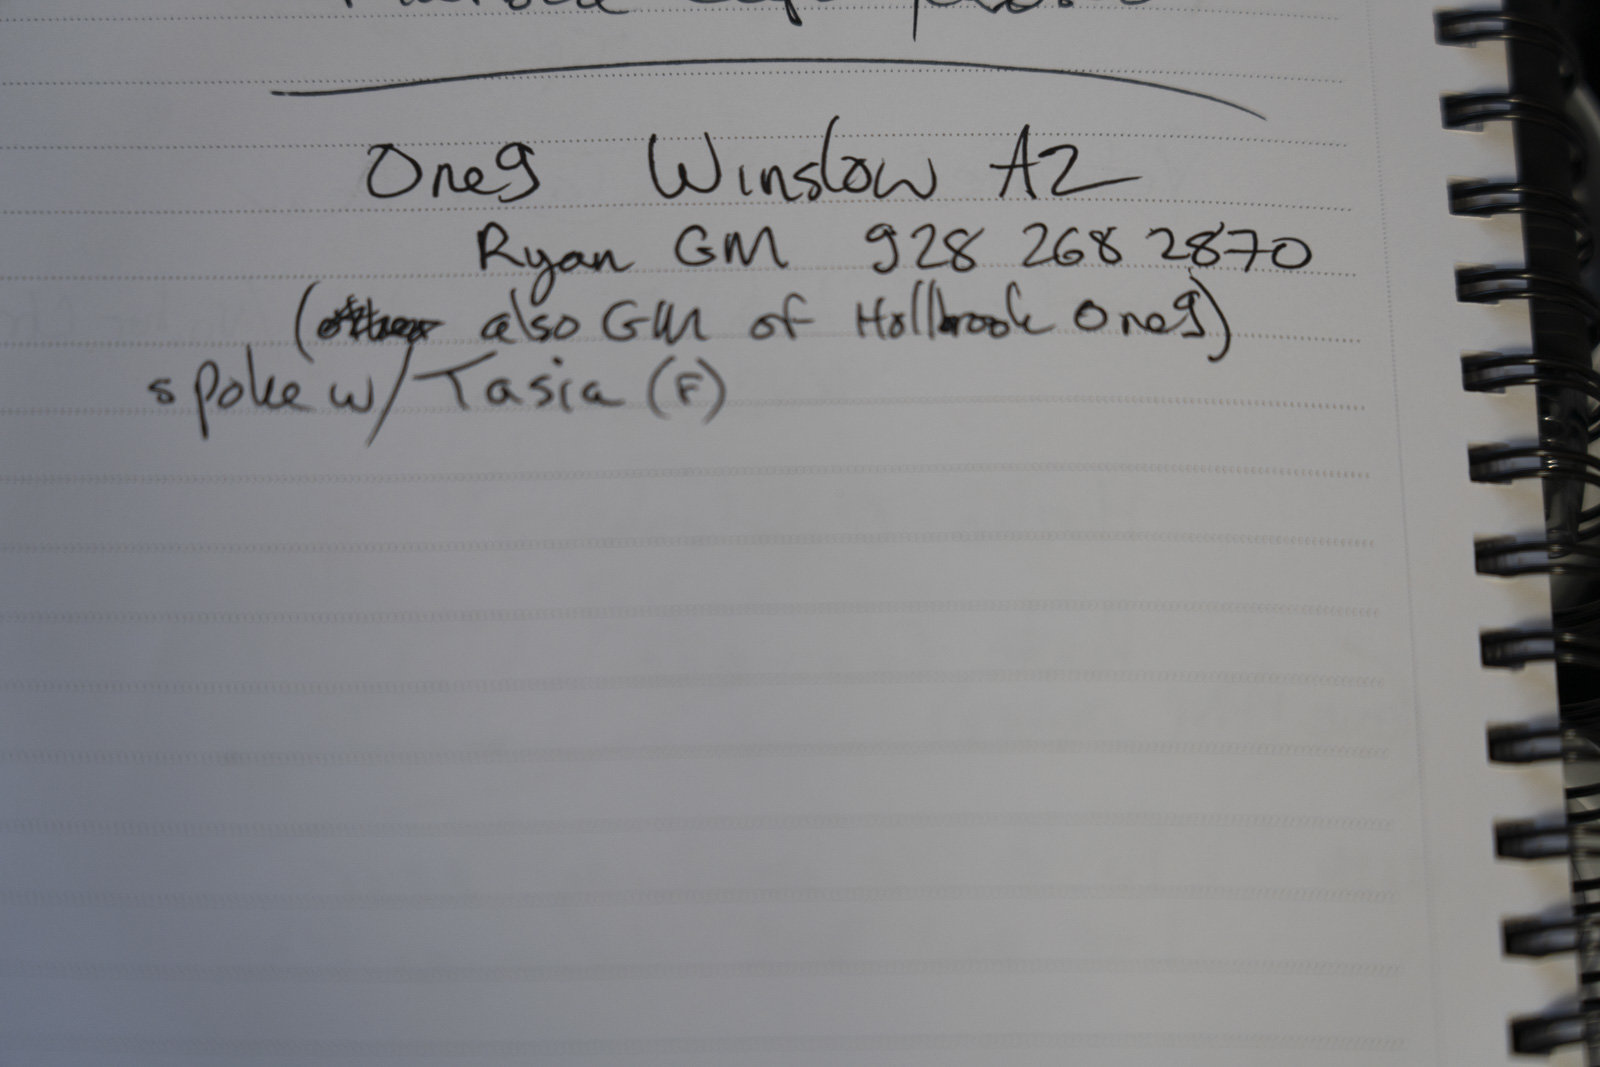 One9 Winslow AZ
Ryan GM 928 268 2870
( also GM of Hollbrook One9)
spoke w/ Tasia (F)